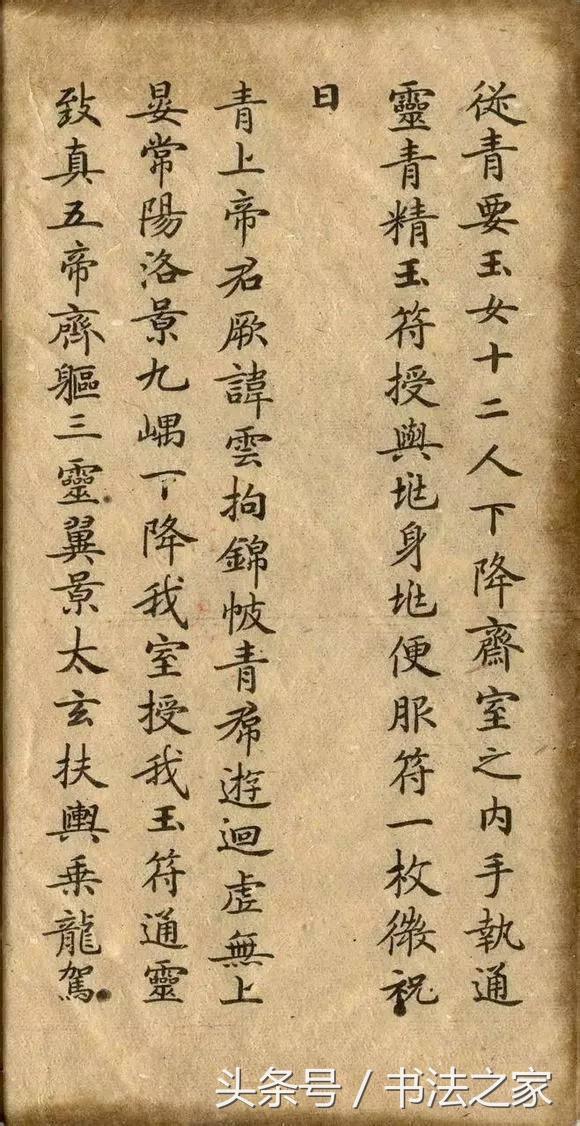 從青要玉女十二人下降齋室之内手執通
靈青精玉符授與地身地便服符一枚微祝
曰
青上帝君厥諱雲拘錦帔青帬遊迴虛無上
晏常陽洛景九嵎下降我室授我玉符通靈
致真五帝齊軀三靈翼景太玄扶輿乘龍駕
头条号 / 书法之家